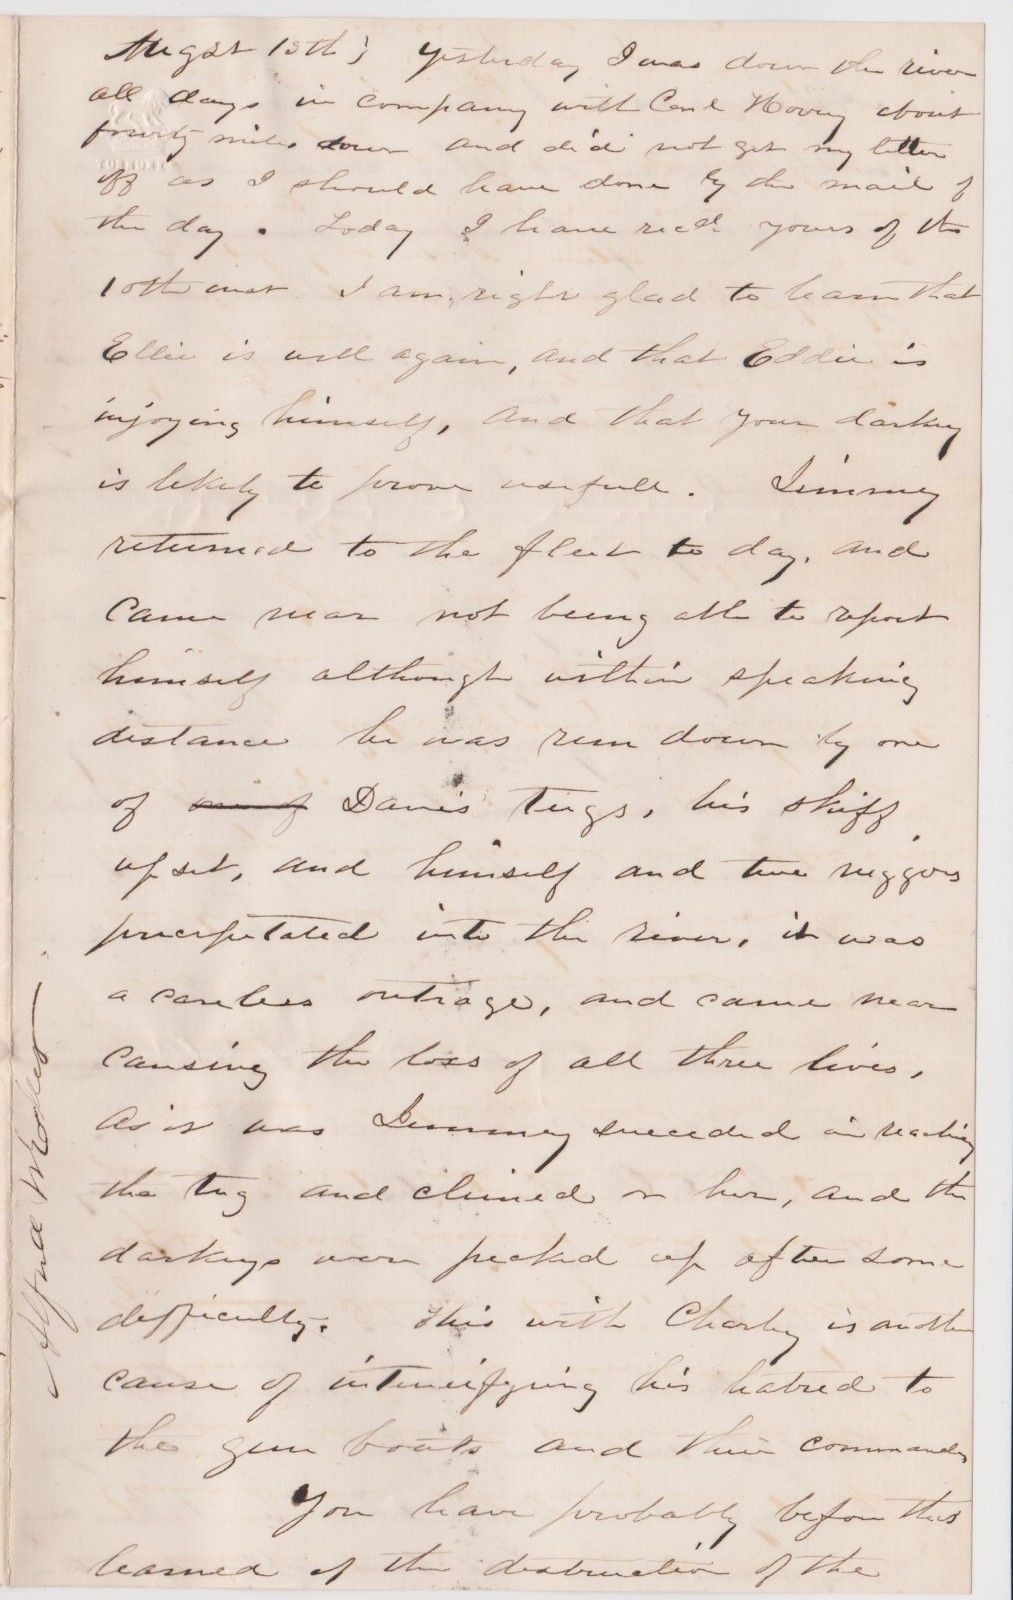 Augst 13th} Yesterday I was down the river
all day in company with Coml Hovey about
fourty miles down and did not get my letter
off as I should have done by the mail of
the day. Today I have recd yours of the
10th inst I am right glad to learn that
Ellie is well again, and that Eddie is
injoying himself, and that your darkey
is likely to prove usefull. Jimmey
returned to the fleet to day, and
came near not being able to report
himself although within speaking
distance he was run down by one
of one of Davis Tugs, his skiff
upset, and himself and two niggors
precipetated into the river, it was
a careless outrage, and came near
causing the loss of all three lives,
As it was Jimmey succeded in reaching
the tug and climed on her, and the
darkeys were picked up after some
difficulty. This with Charley is another
cause of intensifying his hatred to
the gun boats and their commander
You have probably before this
learned of the destruction of the
Alfred